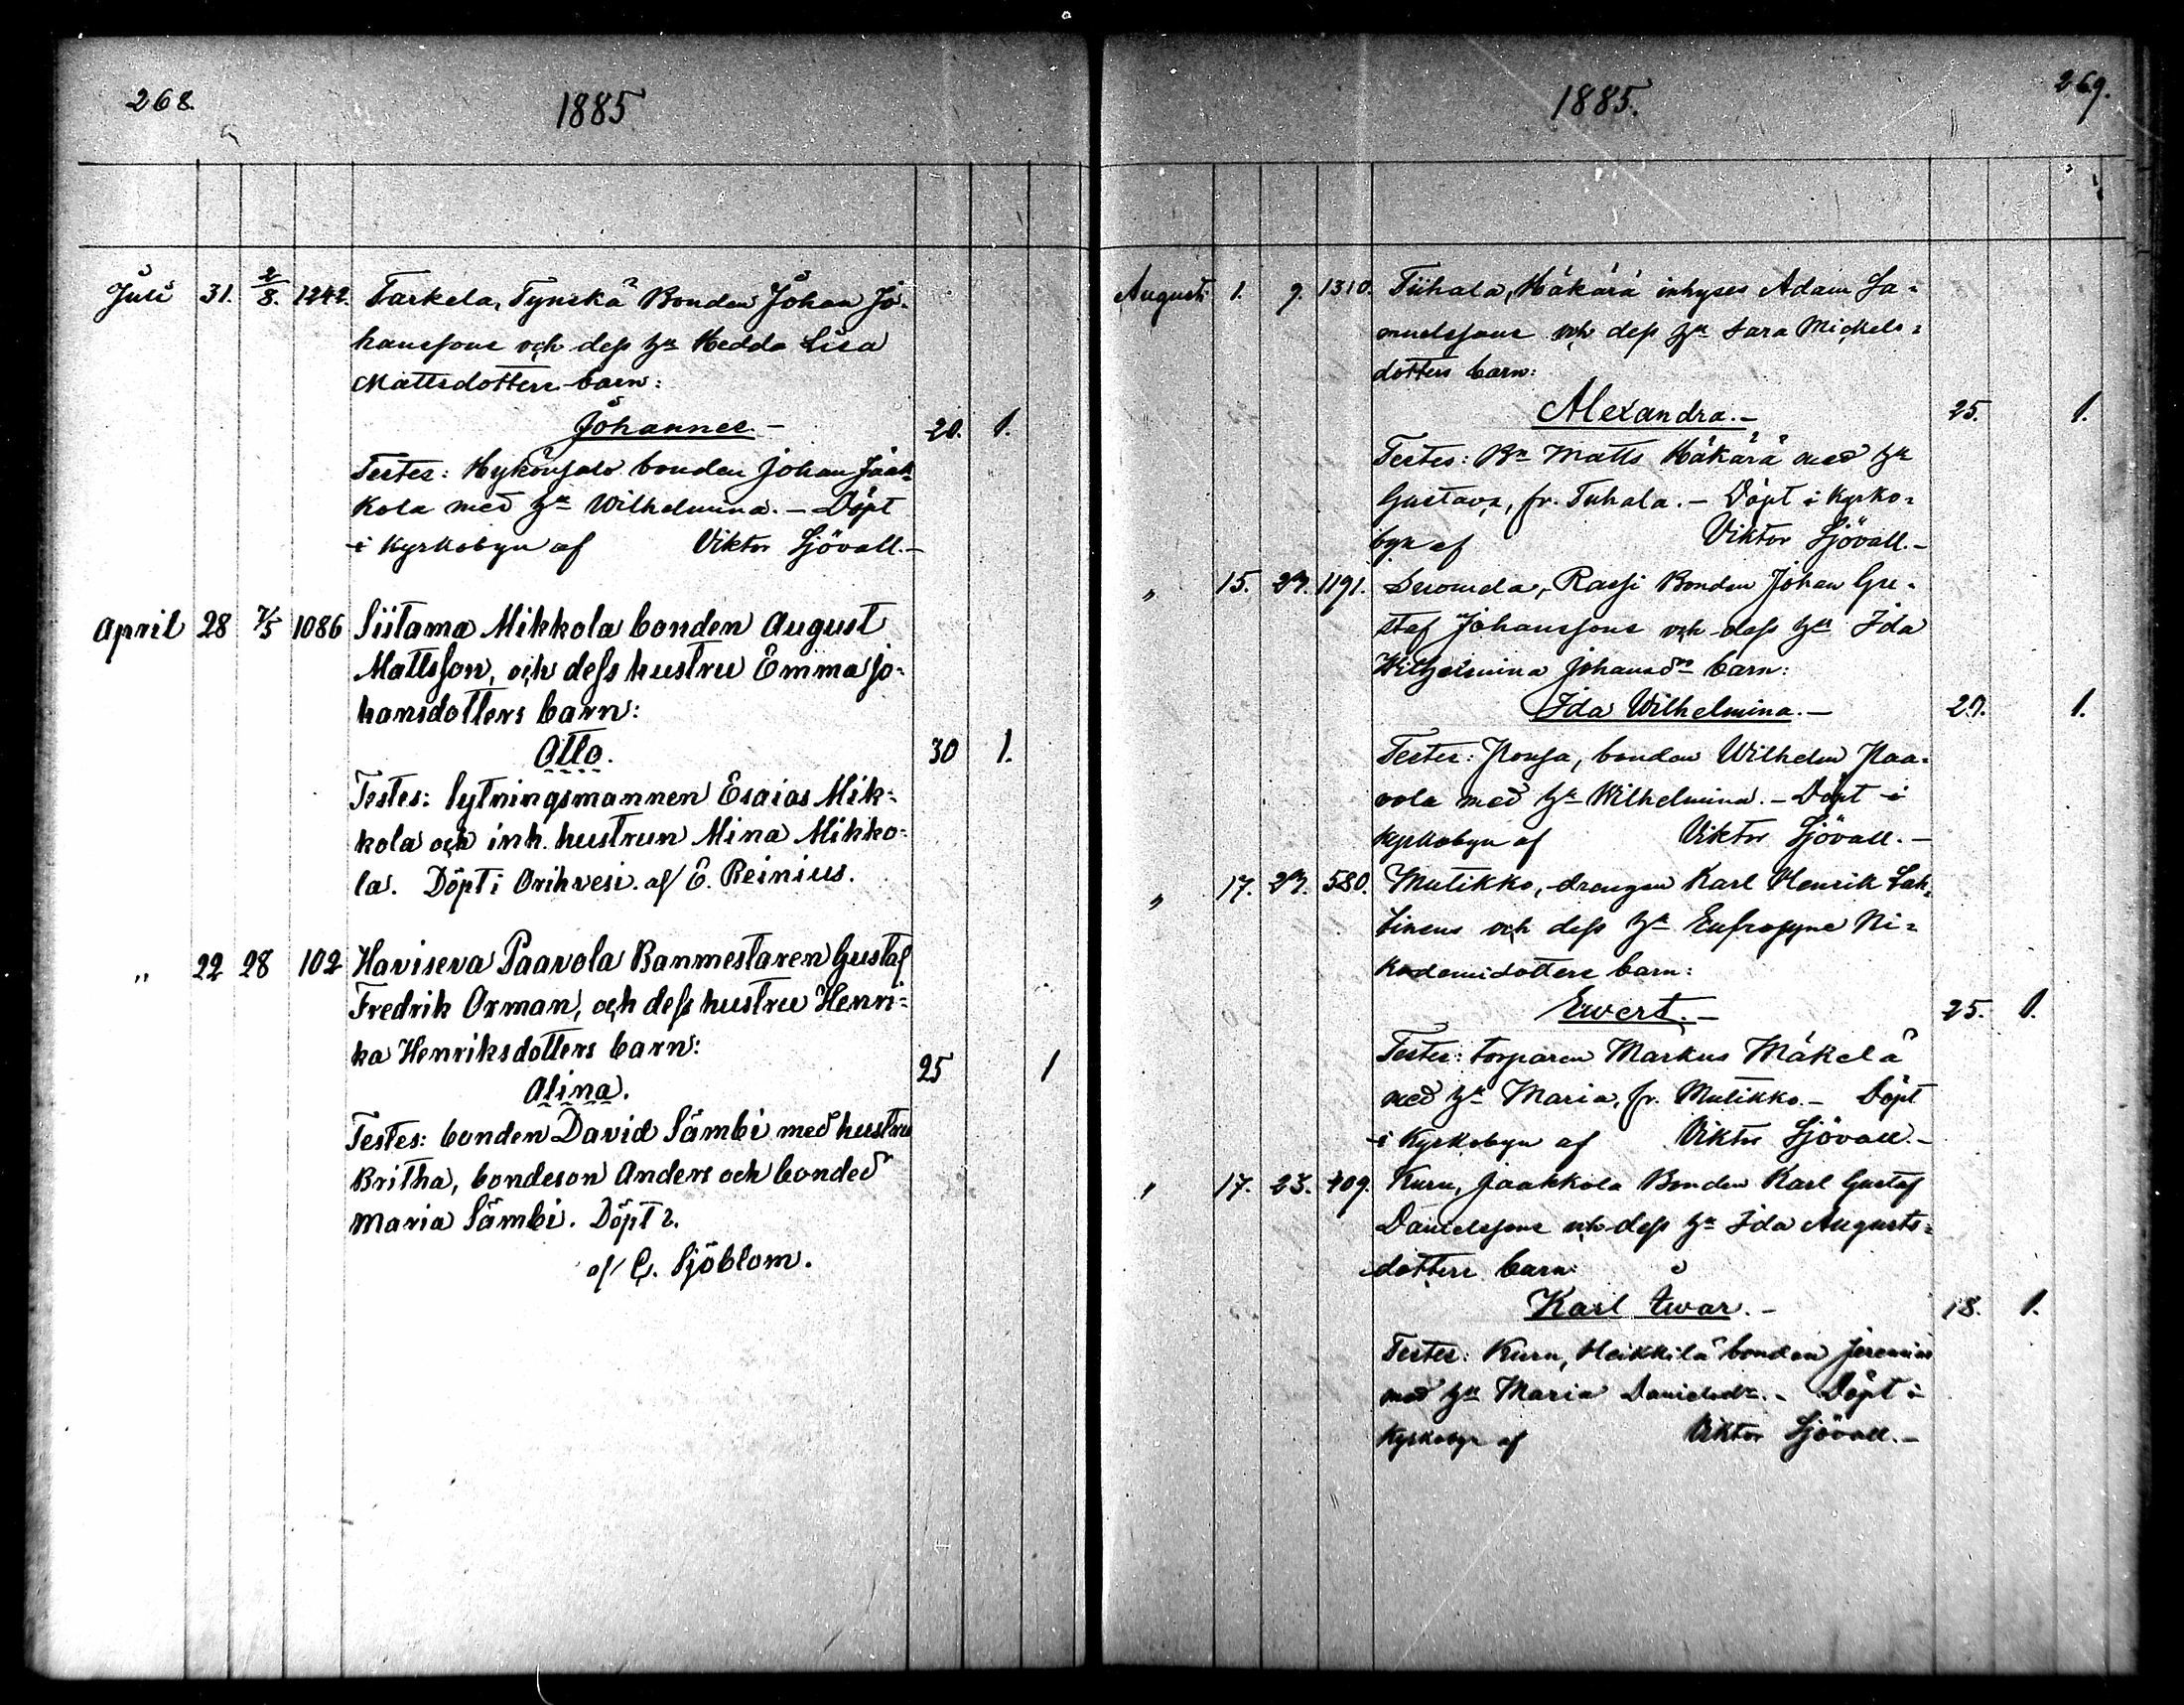 268.
1885
Juli 31. 2/8. 1242. Tarkela, Tynskä Bonden Johan Jo-
hanssons och dess hu Hedda Lisa
Mattsdotters barn:
Johannes.- 20. 1.
Testes: bonden Johan Jaak-
kola med hu Wilhelmina. - Döpt
i Kyrkobyn af Viktor Sjövall.-
April 28 7/5 1086 Siitama Mikkola bonden August
Mattsson, och dess hustru Emma Jo-
hansdotters barn:
Otto. 30 1.
Testes: Sytningsmannen Esaias Mik-
kola och inh. hustrun Mina Mikko-
la. Döpt i Orihvesi. af E. Reinius.
" 22 28 102 Haviseva Paavola Banmestaren Gustaf
Fredrik Orman, och dess hustru Henri-
ka Henriksdotters barn:
Alina. 25 1
Testes: bonden David Sämbi med hustru
Britha, bondeson Anders och bonded
Maria Sämbi. Döpt 2.
af C. Sjöblom.
269.
1885.
Augusti 1. 9. 1310. Tiihala, Häkärä inhyses Adam Sa-
muelssons och dess hu Sara Mickels-
dotters barn:
Alexandra.- 25. 1.
Testes: Bn Matts Häkärä med hu
Gustava, fr. Tiihala. - Döpt i Kyrko-
byn af Viktor Sjövall.-
" 15. 27. 1191. Suomela, Rassi Bonden Johan Gu-
staf Johanssons och dess hu Ida
Wilhelmina Johansdrs barn:
Ida Wilhelmina.- 20. 1.
Testes: bonden Wilhelm Paa-
vola med hu Wilhelmina. - Döpt i
Kyrkobyn af Viktor Sjövall.-
" 17. 27. 580. Mutikko, drängen Karl Henrik Lah-
tinens och dess hu Eufrosyne Ni-
kodemidotters barn:
Ewert.- 25. 1.
Testes: torparen Markus Mäkelä
med hu Maria, fr. Mutikko. - Döpt
i Kyrkobyn af Viktor Sjövall.-
" 17. 23. 409. Kuru, Jaakkola Bonden Karl Gustaf
Danielssons och dess hu Ida Augusts-
dotters barn:
Karl Iwar.- 18. 1.
Testes: Kuru, Heikkilä bonden Jeremias
med hu Maria Danielsdr. - Döpt i
Kyrkobyn af Viktor Sjövall.-